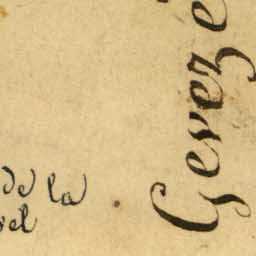 de la
vel
Genezé